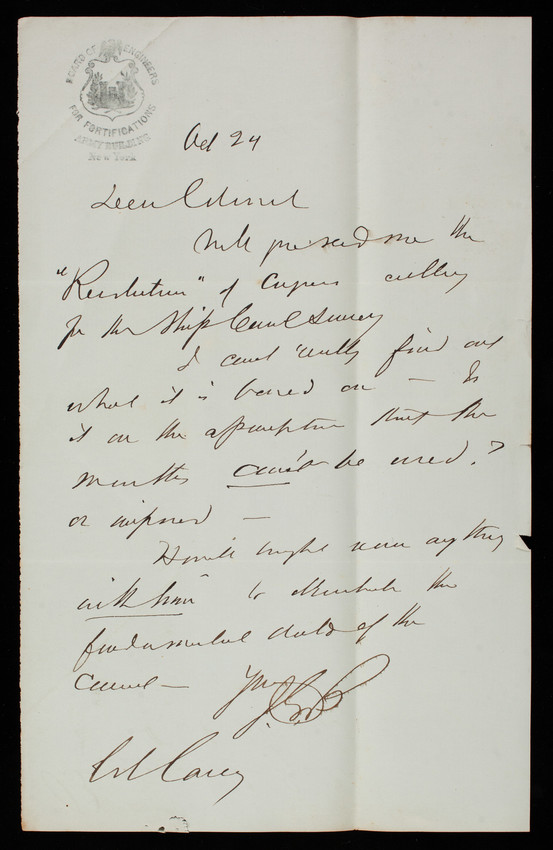 BOARD OF ENGINEERS
FOR FORTIFICATIONS
ARMY BUILDING
New York
Oct 24
Dear Colonel
me the
"Resolution" of Congress calling
for the Ship Canal Survey
I cant really find out
what it is based on — Is
it on the assumption that the
mouths can't be used?
or improved —
anything
with him to the
fundamental data of the
canal — Yrs
Col Casey